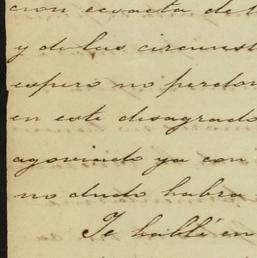 cion ecsacta de l
y de las circunst
espero no perdon
en este desagrado
agoviado ya con
no dudo habra
Te hablé en